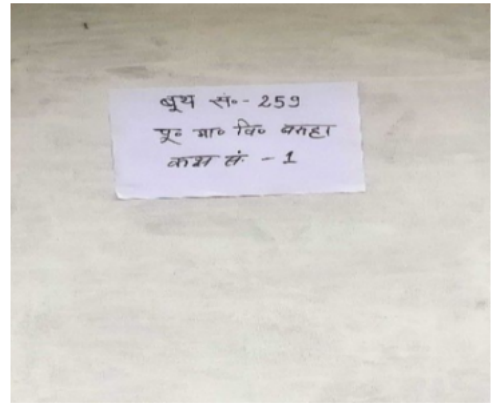 बूथ सं०- 259
पू० मा० वि० बनहा
कक्ष सं. - 1